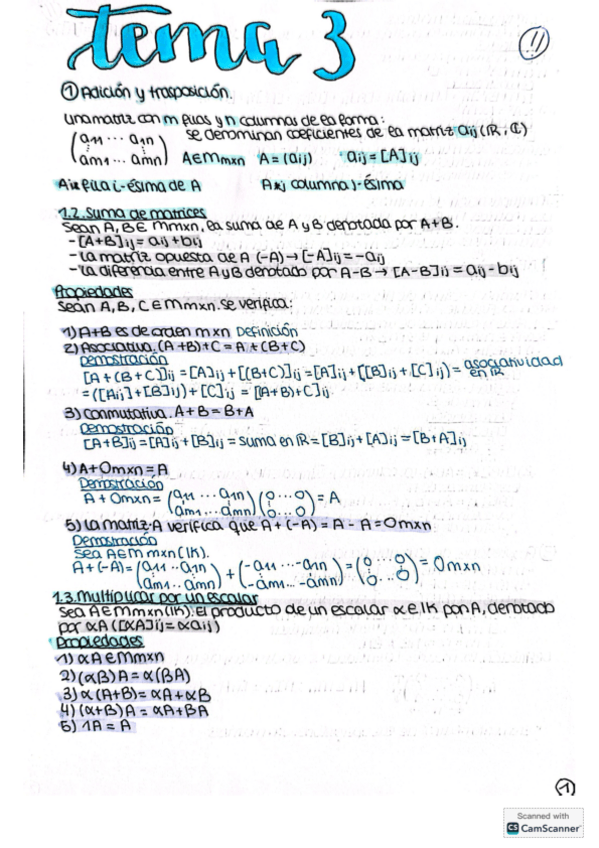 tema 3
11
① Adición y trasposición.
Una matriz con m filas y n columnas de la forma:
(a11 ... a1n
am1 ... amn) se denominan coeficientes de la matriz aij (ℝ, ℂ)
A∈Mmxn A = (aij) aij = [A]ij
Ai* fila i-ésima de A A*j columna j-ésima
1.2. Suma de matrices
Sean A, B ∈ Mmxn, la suma de A y B denotada por A+B.
- [A+B]ij = aij + bij
- La matriz opuesta de A (-A) → [-A]ij = -aij
- La diferencia entre A y B denotado por A-B → [A-B]ij = aij - bij
Propiedades
Sean A, B, C ∈ Mmxn. se verifica:
1) A+B es de orden mxn Definición
2) Asociativa. (A+B)+C = A+(B+C)
Demostración
[A+(B+C)]ij = [A]ij + [(B+C)]ij = [A]ij + ([B]ij + [C]ij) = asociatividad en ℝ
= ([Aij] + [B]ij) + [C]ij = [(A+B)+C]ij
3) Conmutativa. A+B = B+A
Demostración
[A+B]ij = [A]ij + [B]ij = suma en ℝ = [B]ij + [A]ij = [B+A]ij
4) A+0mxn = A
Demostración
A + 0mxn = (a11 ... a1n
am1 ... amn) (0 ... 0
0 ... 0) = A
5) La matriz -A verifica que A + (-A) = A - A = 0mxn
Demostración
Sea A∈Mmxn(𝕂).
A+(-A) = (a11 ... a1n
am1 ... amn) + (-a11 ... -a1n
-am1 ... -amn) = (0 ... 0
0 ... 0) = 0mxn
1.3. Multiplicar por un escalar
Sea A∈Mmxn(𝕂). El producto de un escalar α∈𝕂 por A, denotado
por αA ([αA]ij = αaij)
Propiedades
1) αA∈Mmxn
2) (αβ)A = α(βA)
3) α(A+B) = αA+αB
4) (α+β)A = αA+βA
5) 1A = A
1
Scanned with
CS CamScanner